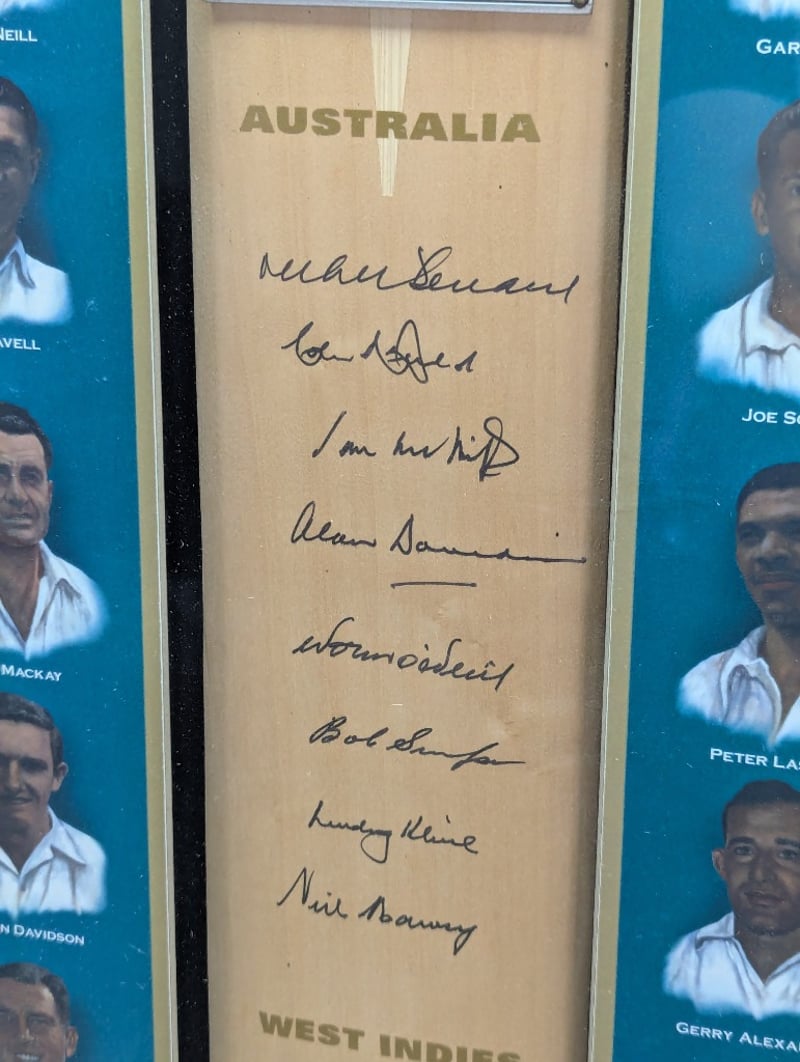 NEILL
AUSTRALIA
GAR
Richie Benaud
Colin McDonald
AVELL
Ian Meckiff
JOE SO
Alan Davidson
Norm O'Neill
MACKAY
Bob Simpson
PETER LAS
Lindsay Kline
Neil Harvey
N DAVIDSON
WEST INDIES
GERRY ALEXA